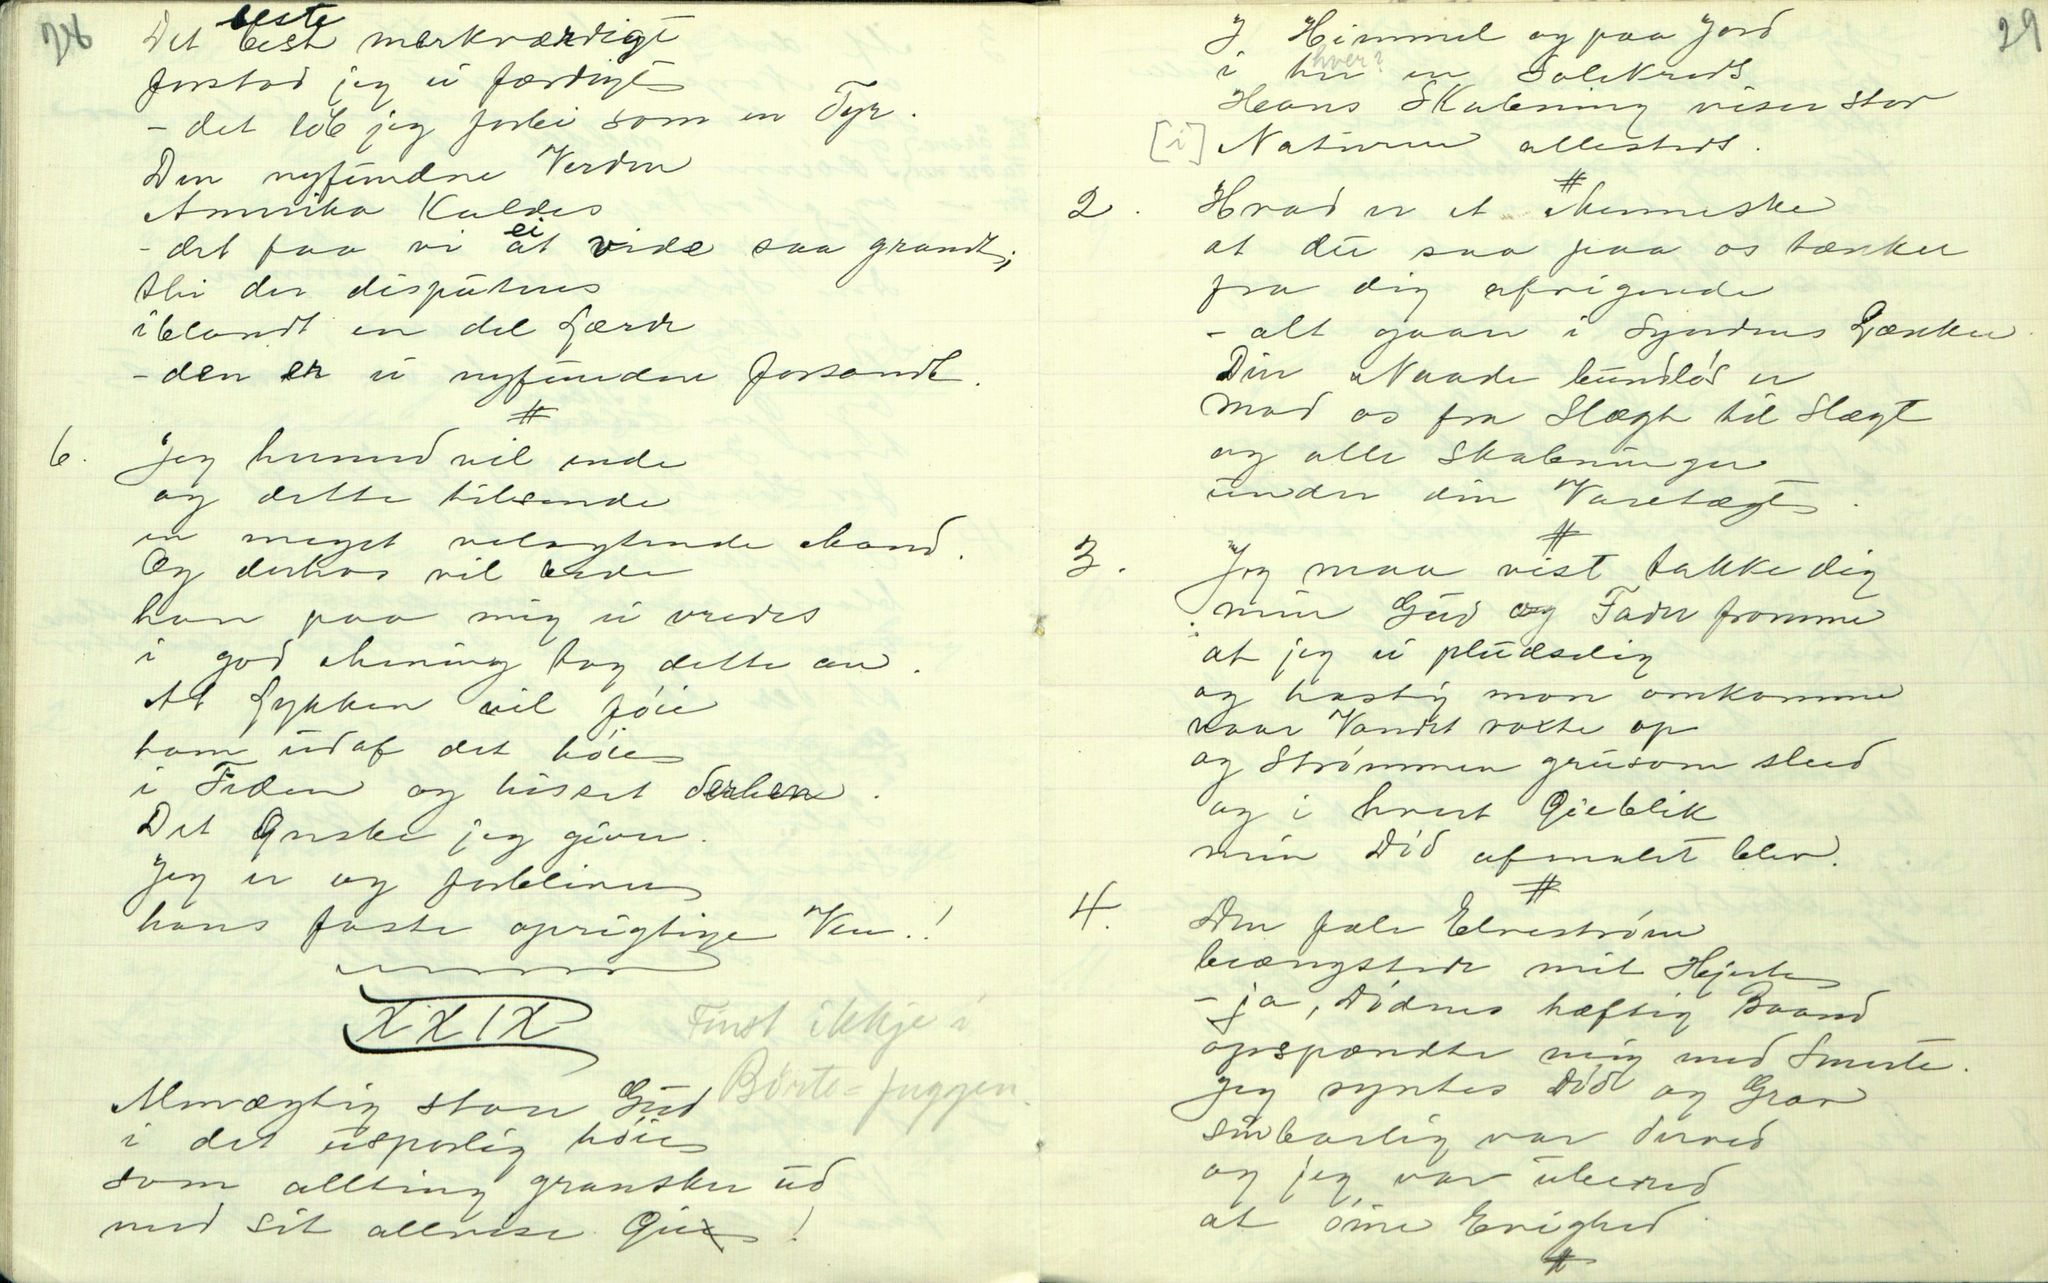 28
beste
Det best merkværdigt
forstod jeg ei færdigt
- det løb jeg forbi som en Tyr.
Den nyfundne Verden
Amerika Kaldes
ei
- det faa vi at vide saa grandt;
thi der disputeres
iblandt en del Lærde
- den er ei nyfunden forsandt.
#
6. Jeg hermed vil ende
og dette tilsende
en meget velagtende Mand.
Og derhos vil bede
han paa mig ei vredes
i god Mening tog dette an.
At Lykken vil føie
ham udaf det høie
i Tiden og hisset derhen.
Det Ønske jeg giver.
Jeg er og forbliver
hans faste oprigtige Ven!
XXIX
Finst ikkje i
Börte-Juggen.
Almægtig store Gud
i det usporlig høie
som allting gransker ud
med sit allvise Øie!
29
I Himmel og paa Jord
hver?
i en Solekreds
Hans Skabning viser stor
[i] Naturen allesteds.
#
2. Hvad er et Menneske
at du saa paa os tænker
fra dig afvigende
- alt gaaer i Syndens Lænker.
Din Naade bundløs er
mod os fra Slægt til Slægt
og alle Skabninger
under din Varetægt.
#
3. Jeg maa vist takke dig
min Gud og Fader fromme
at jeg ei pludselig
og hastig mon omkomme
naar Vandet voxte op
og Strømmen grusom sled
og i hvert Øieblik
min Død afmalet blev.
#
4. Den fæle Elvestrøm
beængstede mit Hjerte
- ja, Dødnes hæftig Baand
opspændte mig med Smerte.
Jeg syntes Død og Grav
sinbarlig var derved
og jeg var uberedt
at Evighed
#